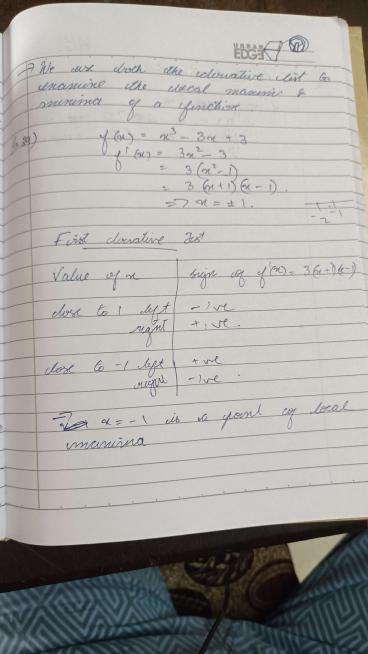 URBAN EDGE
→ We use both the derivative test to
examine the local maxima &
minima of a function.
f(x) = x³ - 3x + 3
f'(x) = 3x² - 3
= 3(x² - 1)
= 3(x+1)(x-1).
=> x = ± 1.
First derivative Test
Value of x | sign of f'(x) = 3(x+1)(x-1)
close to 1 left | -ve
right | +ve.
close to -1 left | +ve
right | -ve.
→ x = -1 is a point of local
maxima